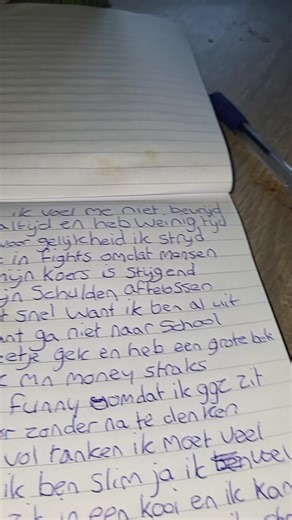 ik voel me niet bevrijd
altijd en heb weinig tijd
voor gelijkheid ik strijd
in fights omdat mensen
mijn koers is stijgend
mijn Schulden aflossen
snel want ik ben al uit
want ga niet naar School
beetje gek en heb een grote bek
mn money straks
funny omdat ik ggz zit
zonder na te denken
vol tanken ik moet veel
ik ben slim ja ik voel
zit in een kooi en ik kan